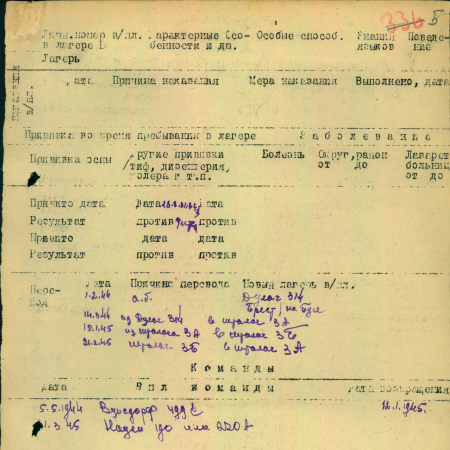 336 Б
Личн.номер в/пл. Характерные Осо- Особые способ. Знания Поведе-
в лагере бенности и др. языков ние
Лагерь
дата Причина наказания Мера наказания Выполнено, дата
в/пл.
Прививка во время пребывания в лагере Заболевание
Прививка оспы другие прививки Болезнь Округ,район Лазарет
/тиф, дизентерия, от до больниц
холера и т.п. от до
Привито дата Дата дата
Результат против против
Привито дата дата
Результат против против
Пере- дата Причина перевода Новый лагерь в/пл.
вод 1.2.44 Дулаг 314
Брест / на Буге
14.3.44 из Дулаг 314 в шталаг 3А
12.1.45 из шталага 3А в шталаг 3Б
31.2.45 шталаг 3Б в шталаг 3А
Команды
дата Вид команды дата возвращения
5.5.1944 12.1.1945.
1.3.45